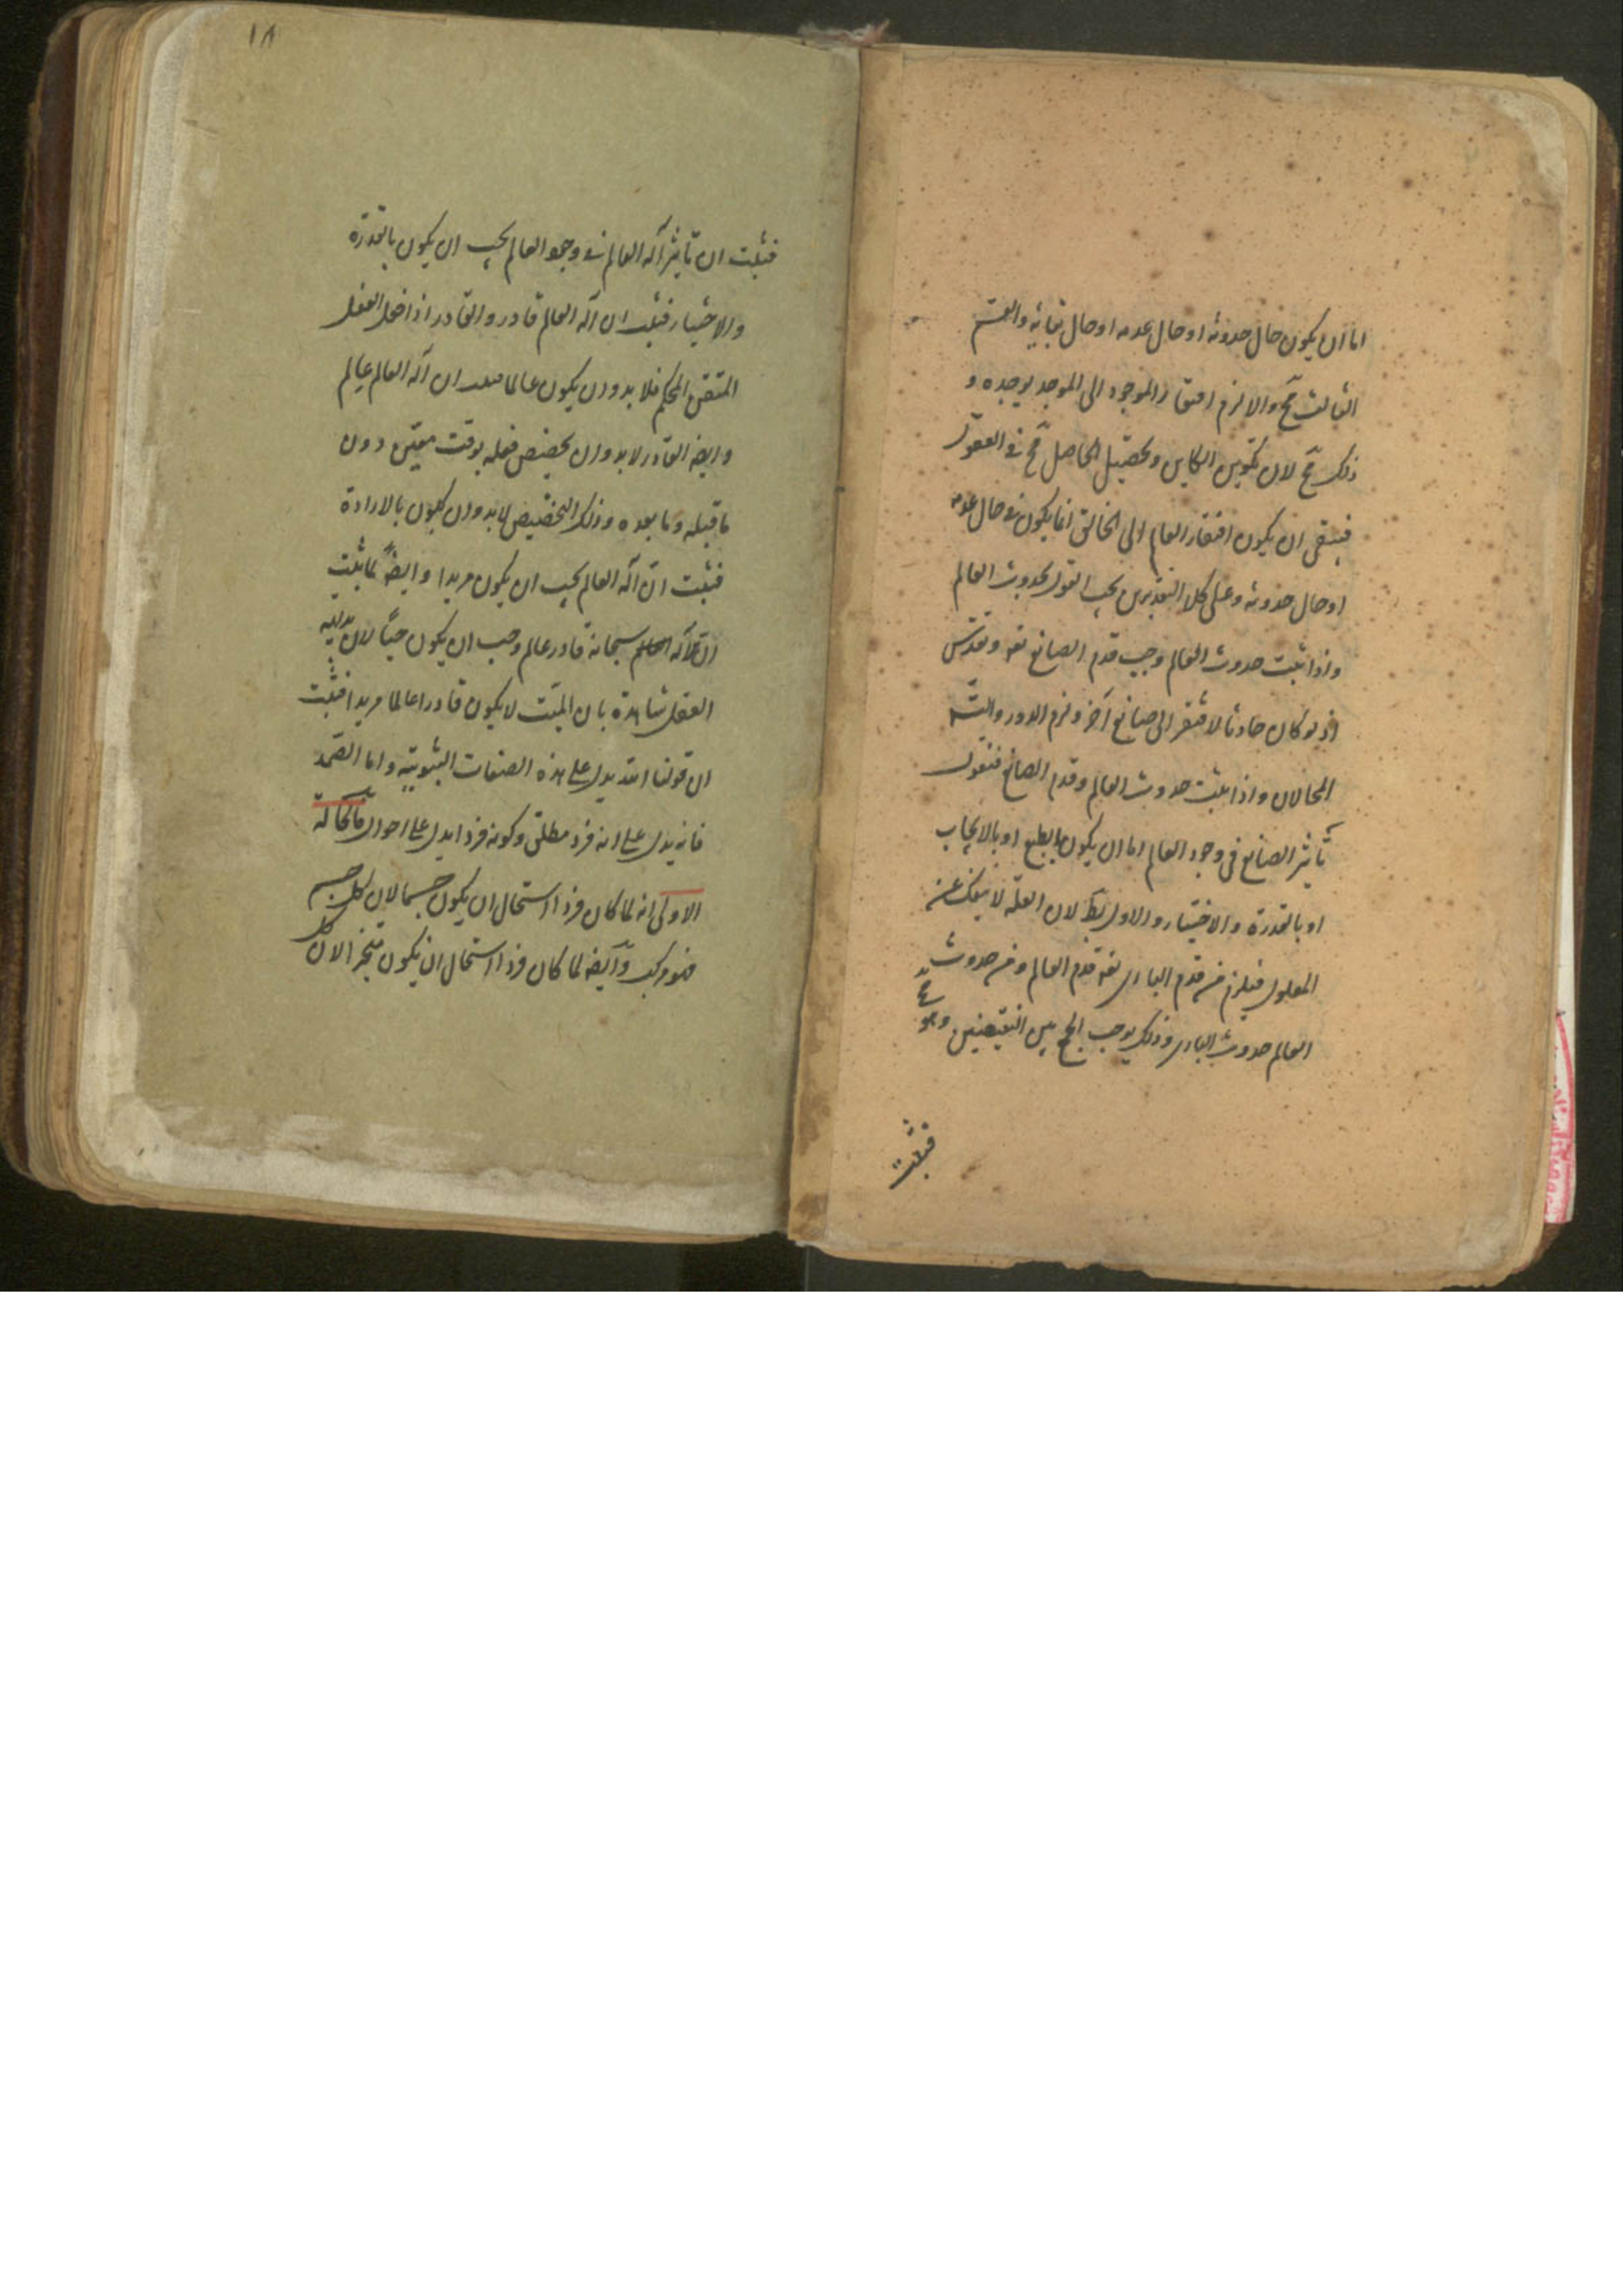 اما ان يكون حال حدوثه او حال عدمه او حال بقائه والقسم
الثالث مح والا لزم افتقار الموجود الى الموجد يوجده و
ذلك مح لان تكوين الكاين وتحصيل الحاصل مح في العقول
فبقى ان يكون افتقار العالم الى الخالق انما يكون في حال عدمه
او حال حدوثه وعلى كلا التقديرين يجب القول بحدوث العالم
واذا ثبت حدوث العالم وجب قدم الصانع تعه وتقدس
اذ لو كان حادثا لافتقر الى صانع آخر ولزم الدور والتسم
المحالان واذا ثبت حدوث العالم وقدم الصانع فنقول
تأثير الصانع في وجود العالم اما ان يكون بالطبع او بالايجاب
او بالقدرة والاختيار والاول بط لان العلة لا ينفك عن
المعلول فيلزم من قدم البارى تعه قدم العالم ومن حدوث
العالم حدوث البارى وذلك يوجب الجمع بين النقيضين وهو مح
فثبت
١٨
فثبت ان تأثير آله العالم في وجود العالم يجب ان يكون بالقدرة
والاختيار فثبت ان آله العالم قادر والقادر اذا فعل الفعل
المتقن المحكم فلا بد وان يكون عالما فثبت ان آله العالم عالم
وايضه القادر لا بد وان يخصص فعله بوقت معين دون
ما قبله وما بعده وذلك التخصيص لا بد وان يكون بالارادة
فثبت ان آله العالم يجب ان يكون مريدا وايضه لما ثبت
ان آله العالم سبحانه قادر عالم وجب ان يكون حيا لان بديهة
العقل شاهدة بان الميت لا يكون قادرا عالما مريدا فثبت
ان قولنا الله يدل على هذه الصفات الثبوتية واما الصمد
فانه يدل على انه فرد مطلق وكونه فردا يدل على احوال فالحالة
الاولى انه لما كان فردا استحال ان يكون جسما لان كل جسم
فهو مركب وآيضه لما كان فردا استحال ان يكون متحيزا لان كل